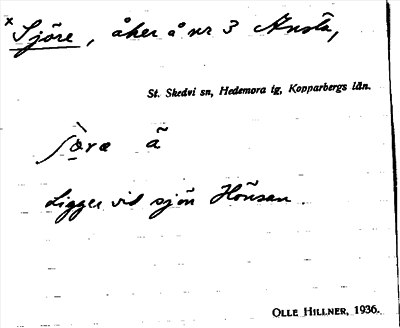 × Sjöre, åker å nr 3 Ansta,
St. Skedvi sn, Hedemora tg, Kopparbergs län.
ʃæ̀ræ ã
Ligger vid sjön Hönsan.
OLLE HILLNER, 1936.